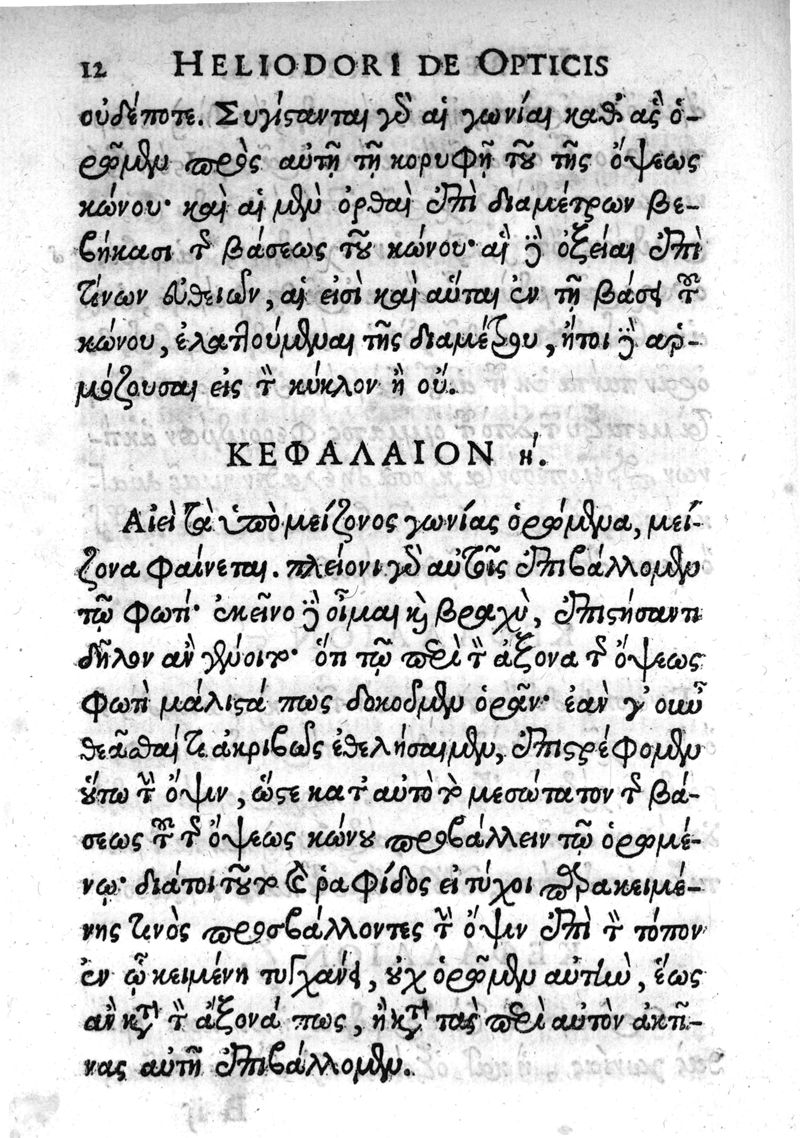 12 HELIODORI DE OPTICIS
οὐδέποτε. Συνίστανται γὰρ αἱ γωνίαι καθ' ἃς ὁ-
ρῶμεν πρὸς αὐτῇ τῇ κορυφῇ τοῦ τῆς ὄψεως
κώνου· καὶ αἱ μὲν ὀρθαὶ ἐπὶ διαμέτρων βε-
βήκασι τῆς βάσεως τοῦ κώνου· αἱ δὲ ὀξεῖαι ἐπὶ
τίνων εὐθειῶν, αἵ εἰσι καὶ αὗται ἐν τῇ βάσει τοῦ
κώνου, ἐλαττούμεναι τῆς διαμέτρου, ἤτοι δὲ ἁρ-
μόζουσαι εἰς τὸν κύκλον ἢ οὔ.
ΚΕΦΑΛΑΙΟΝ η΄.
Αἰεὶ τὰ ὑπὸ μείζονος γωνίας ὁρώμενα, μεί-
ζονα φαίνεται. πλείονι γὰρ αὐτοῖς ἐπιβάλλομεν
τῷ φωτί· ἐκεῖνο δὲ οἶμαι καὶ βραχὺ, ἐπιστήσαντι
δῆλον ἂν γένοιτο· ὅτι τῷ περὶ τὸν ἄξονα τῆς ὄψεως
φωτὶ μάλιστά πως δοκοῦμεν ὁρᾶν· ἐὰν γ' οὖν
θεᾶσθαί τι ἀκριβῶς ἐθελήσαιμεν, ἐπιστρέφομεν
οὕτω τὴν ὄψιν, ὥστε κατ' αὐτὸ τὸ μεσώτατον τῆς βά-
σεως τοῦ τῆς ὄψεως κώνου προβάλλειν τῷ ὁρωμέ-
νῳ· διάτοι τοῦτο καὶ ῥαφίδος εἰ τύχοι παρακειμέ-
νης τινὸς προσβάλλοντες τὴν ὄψιν ἐπὶ τὸν τόπον
ἐν ᾧ κειμένη τυγχάνει, οὐχ ὁρῶμεν αὐτὴν, ἕως
ἂν κατὰ τὸν ἄξονά πως, ἢ κατὰ τὰς περὶ αὐτὸν ἀκτῖ-
νας αὐτῇ ἐπιβάλλομεν.